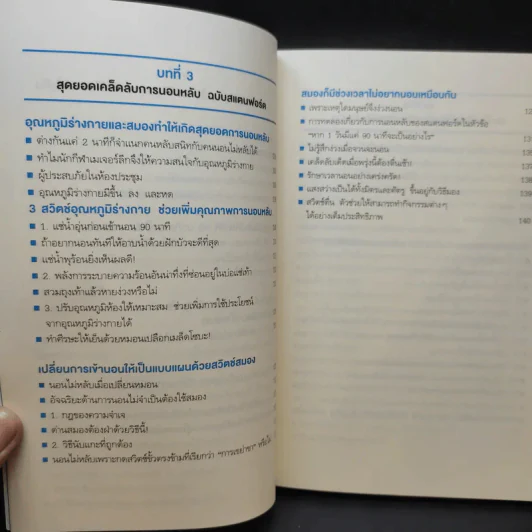 บทที่ 3
สุดยอดเคล็ดลับการนอนหลับ ฉบับสแตนฟอร์ด
อุณหภูมิร่างกายและสมองทำให้เกิดสุดยอดการนอนหลับ
■ ต่างกันแค่ 2 นาทีที่จำแนกคนหลับสนิทกับคนนอนไม่หลับได้
■ ทำไมนักกีฬาเมเจอร์ลีกจึงให้ความสนใจกับอุณหภูมิร่างกาย
■ ผู้ประสบภัยในห้องประชุม
■ อุณหภูมิร่างกายมีขึ้น ลง และหด
3 สวิตช์อุณหภูมิร่างกาย ช่วยเพิ่มคุณภาพการนอนหลับ
■ 1. แช่น้ำอุ่นก่อนเข้านอน 90 นาที
■ ถ้าอยากนอนทันทีให้อาบน้ำด้วยฝักบัวจะดีที่สุด
■ แช่น้ำพุร้อนยิ่งเห็นผลดี!
■ 2. พลังการระบายความร้อนอันน่าทึ่งที่ซ่อนอยู่ในบ่อแช่เท้า
■ สวมถุงเท้าแล้วหายง่วงหรือไม่
■ 3. ปรับอุณหภูมิห้องให้เหมาะสม ช่วยเพิ่มการใช้ประโยชน์
จากอุณหภูมิร่างกายได้
■ ทำศีรษะให้เย็นด้วยหมอนเปลือกเมล็ดโซบะ!
เปลี่ยนการเข้านอนให้เป็นแบบแผนด้วยสวิตช์สมอง
■ นอนไม่หลับเมื่อเปลี่ยนหมอน
■ อัจฉริยะด้านการนอนไม่จำเป็นต้องใช้สมอง
■ 1. กฎของความจำเจ
■ ด่านสมองต้องฝ่าด้วยวิธีนี้!
■ 2. วิธีนับแกะที่ถูกต้อง
■ นอนไม่หลับเพราะกดสวิตช์ขั้วตรงข้ามที่เรียกว่า "การเขย่าขา"
สมองก็มีช่วงเวลาไม่อยากนอนเหมือนกัน
■ เพราะเหตุใดมนุษย์จึงง่วงนอน
■ การทดลองเกี่ยวกับการนอนหลับของสแตนฟอร์ดในหัวข้อ
"หาก 1 วันมีแค่ 90 นาทีจะเป็นอย่างไร"
■ ไม่รู้สึกง่วงเมื่อจวนจะนอน
■ เคล็ดลับเด็ดเมื่อพรุ่งนี้ต้องตื่นเช้า!
■ รักษาเวลานอนอย่างเคร่งครัด!
■ แสงสว่างเป็นได้ทั้งมิตรและศัตรู ขึ้นอยู่กับวิธีมอง
■ สวิตช์ตื่น ตัวช่วยให้สามารถทำกิจกรรมต่างๆ
ได้อย่างเต็มประสิทธิภาพ 140